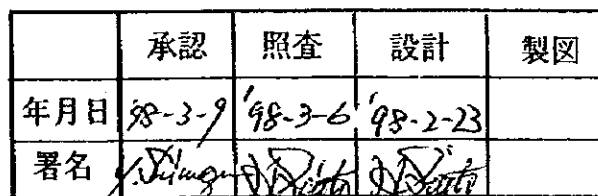 承認 照査 設計 製図
年月日 '98-3-9 '98-3-6 '98-2-23
署名